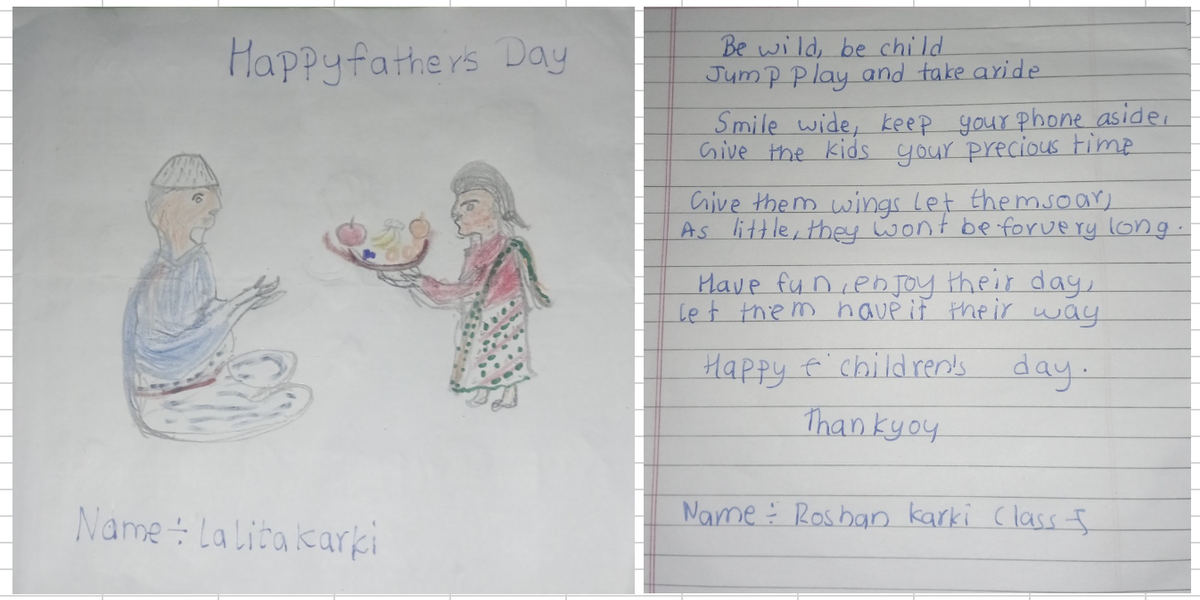 Happy father's Day
Name ÷ Lalita karki
Be wild, be child
Jump play and take aride
Smile wide, keep your phone aside,
Give the kids your precious time
Give them wings let them soar,
As little, they wont be for very long.
Have fun, enjoy their day,
Let them have it their way
Happy ÷ children's day.
Thankyoy
Name ÷ Roshan karki Class-5